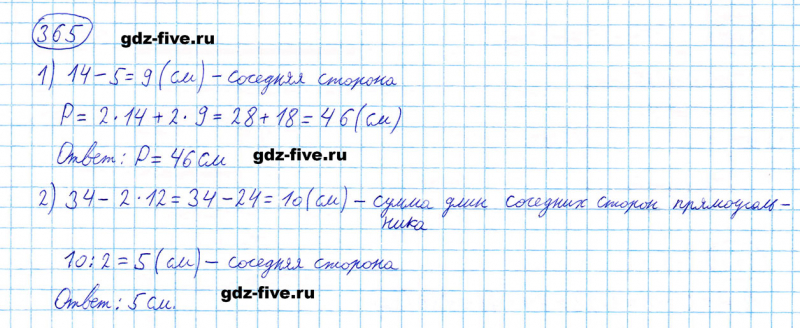 365 gdz-five.ru
1) 14 - 5 = 9 (см) - соседняя сторона
P = 2 · 14 + 2 · 9 = 28 + 18 = 46 (см)
Ответ: P = 46 см gdz-five.ru
2) 34 - 2 · 12 = 34 - 24 = 10 (см) - сумма длин соседних сторон прямоуголь-
ника
10 : 2 = 5 (см) - соседняя сторона
Ответ: 5 см. gdz-five.ru